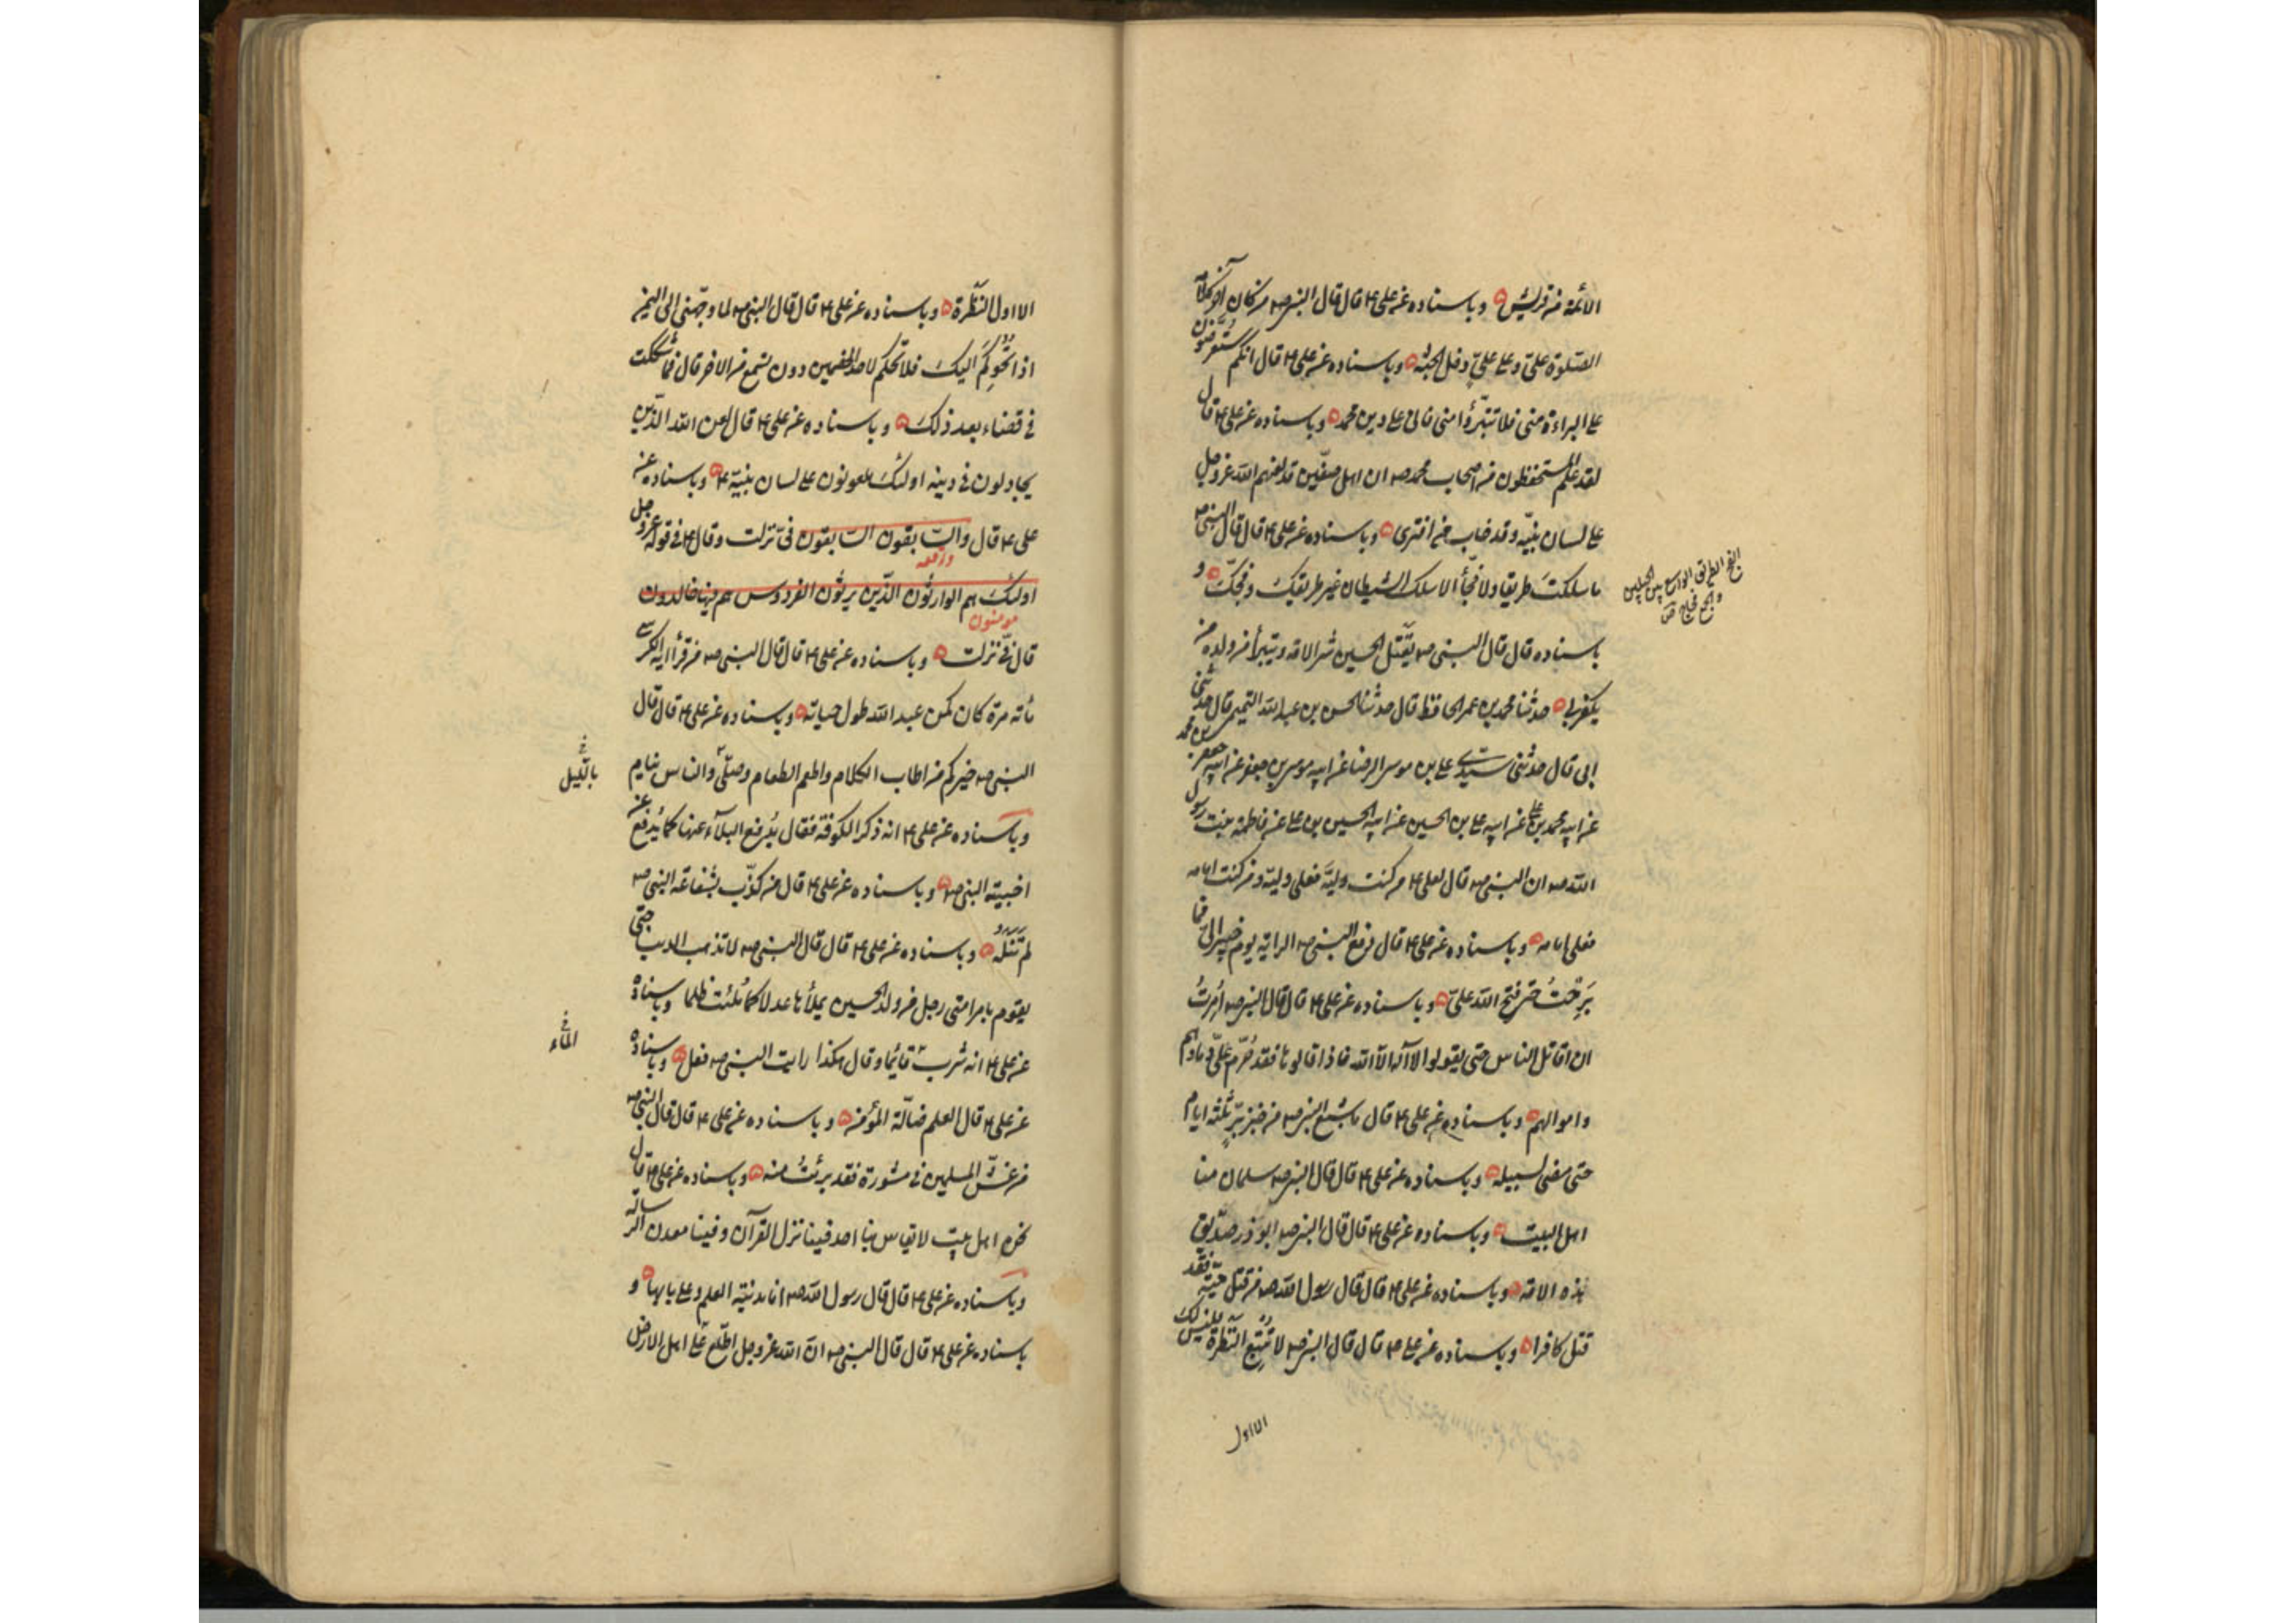 الائمة من قريش وباسناده عن علي ع قال قال النبي صه من كان آخر كلامه
الصلوة علي وعلى علي دخل الجنة وباسناده عن علي ع قال انكم ستعرضون
على البراءة مني فلا تتبرؤا مني فاني على دين محمد وباسناده عن علي ع قال
لقد علم المستحفظون من اصحاب محمد صه ان اهل صفين قد لعنهم الله عز وجل
على لسان نبيه وقد خاب من افترى وباسناده عن علي ع قال قال النبي صه
ما سلكت طريقا ولا فجأ الا سلك الشيطان غير طريقك وفجك و
الفج الطريق الواسع بين الجبلين
والجمع فجاج ص
باسناده قال قال النبي صه يقتل الحسين شر الامة ويتبرأ من ولده من
يكفر بي حدثنا محمد بن عمر الحافظ قال حدثنا الحسن بن عبد الله التميمي قال حدثني
ابي قال حدثني سيدي علي بن موسى الرضا عن ابيه موسى بن جعفر عن ابيه جعفر بن محمد
عن ابيه محمد بن علي عن ابيه علي بن الحسين عن ابيه الحسين بن علي عن فاطمة بنت رسول
الله صه ان النبي صه قال لعلي ع من كنت وليه فعلي وليه ومن كنت امامه
فعلي امامه وباسناده عن علي ع قال دفع النبي صه الراية يوم خيبر الي فما
برحت حتى فتح الله علي وباسناده عن علي ع قال قال النبي صه امرت
ان اقاتل الناس حتى يقولوا لا آله الا الله فاذا قالوها فقد حرم علي دماؤهم
واموالهم وباسناده عن علي ع قال ما شبع النبي صه من خبز بر ثلثة ايام
حتى مضى لسبيله وباسناده عن علي ع قال قال النبي صه سلمان منا
اهل البيت وباسناده عن علي ع قال قال النبي صه ابو ذر صديق
هذه الامة وباسناده عن علي ع قال قال رسول الله صه من قتل حية فقد
قتل كافرا وباسناده عن علي ع قال قال النبي صه لا تتبع النظرة فليس لك
الا اول
الا اول النظرة وباسناده عن علي ع قال قال النبي صه لما وجهني الى اليمن
اذا تحوكم اليك فلا تحكم لاحد الخصمين دون تسمع من الاخر قال فما شككت
في قضاء بعد ذلك وباسناده عن علي ع قال لعن الله الذين
يجادلون في دينه اولئك ملعونون على لسان نبيه ع وباسناده عن
علي ع قال والسابقون السابقون في نزلت وقال ع في قوله عز وجل
واقعه
اولئك هم الوارثون الذين يرثون الفردوس هم فيها خالدون
مومنون
قال في نزلت وباسناده عن علي ع قال قال النبي صه من قرأ اية الكرسي
مأته مرة كان كمن عبد الله طول حياته وباسناده عن علي ع قال قال
النبي صه خيركم من اطاب الكلام واطعم الطعام وصلى والناس نيام
بالليل
وباسناده عن علي ع انه ذكر الكوفة فقال يدفع البلآء عنها كما يدفع عن
اخبية النبي صه وباسناده عن علي ع قال من كذب بشفاعة النبي صه
لم تنله وباسناده عن علي ع قال قال النبي صه لا تذهب الدنيا حتى
يقوم بامر امتي رجل من ولد الحسين يملأها عدلا كما ملئت ظلما وباسناده
عن علي ع انه شرب قائما وقال هكذا رايت النبي صه فعل وباسناده
الماء
عن علي ع قال العلم ضالة المؤمن وباسناده عن علي ع قال قال النبي صه
من غش المسلمين في مشورة فقد برئت منه وباسناده عن علي ع قال
نحن اهل بيت لا يقاس بنا احد فينا نزل القرآن وفينا معدن الرسالة
وباسناده عن علي ع قال قال رسول الله صه انا مدينة العلم وعلي بابها و
باسناده عن علي ع قال قال النبي صه ان الله عز وجل اطلع على اهل الارض